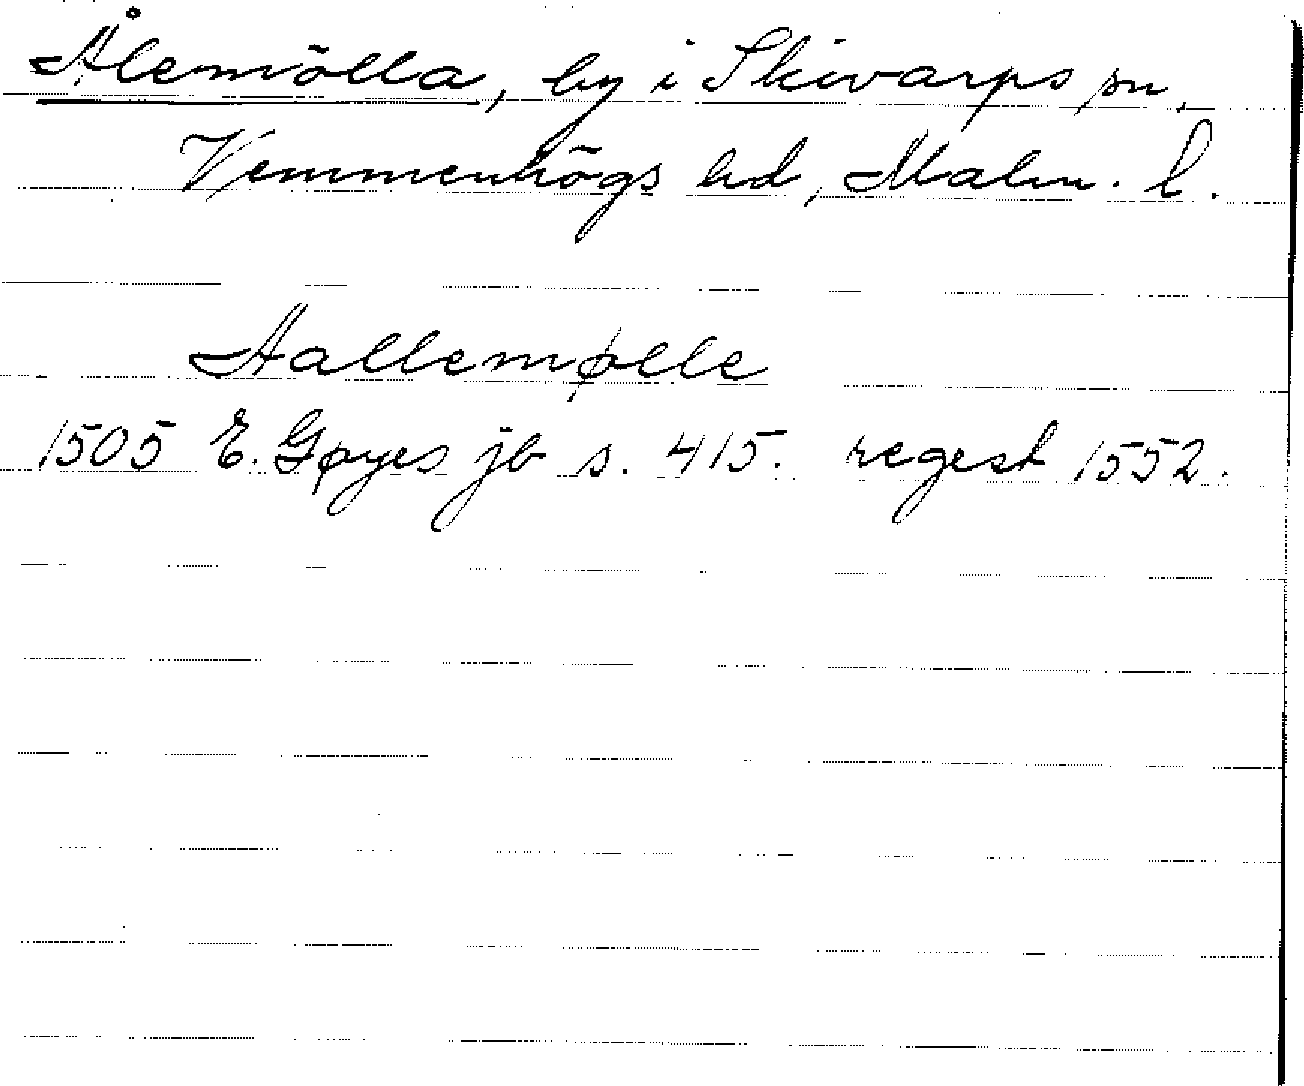 Ålemölla, by i Skivarps sn,
Vemmenhögs hd, Malm. l.
Aallemølle
1505 E. Gøyes jb s. 415. regest 1552.